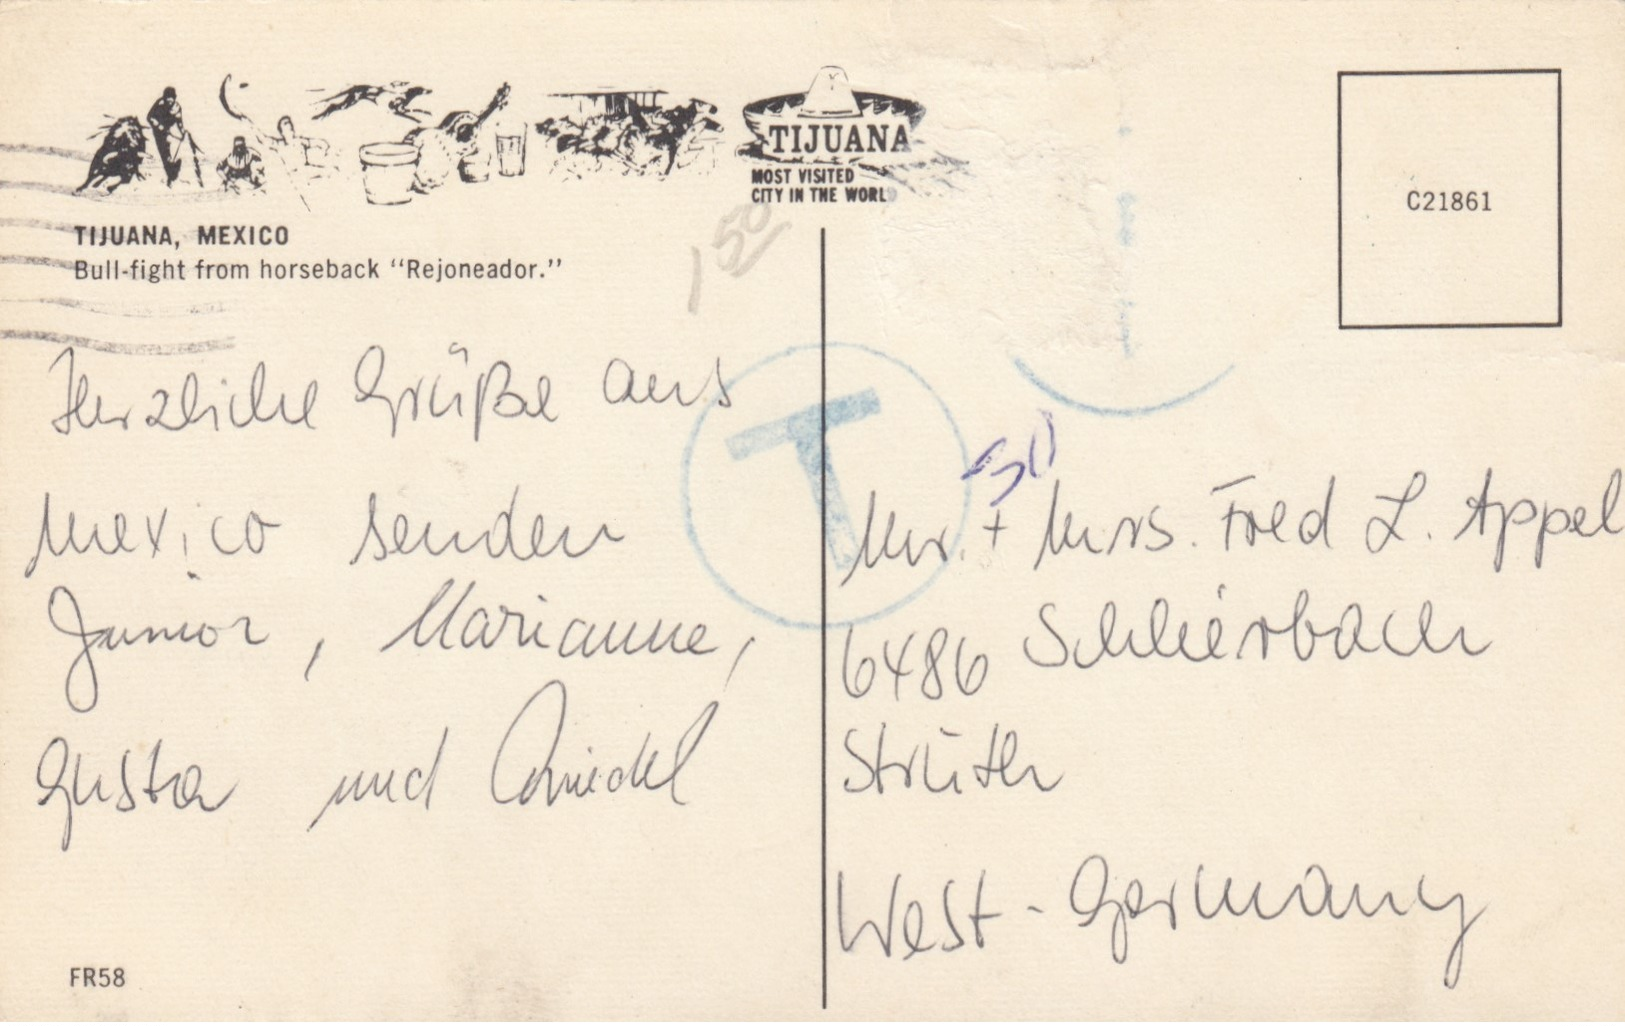 TIJUANA
MOST VISITED
CITY IN THE WORLD
TIJUANA, MEXICO
Bull-fight from horseback “Rejoneador.”
C21861
1 50
T
50
Herzliche Grüße aus
Mexico senden
Junior, Marianne,
Gusta und
Mr. + Mrs. Fred L. Appel
6486 Schlierbach
Strüth
West-Germany
FR58